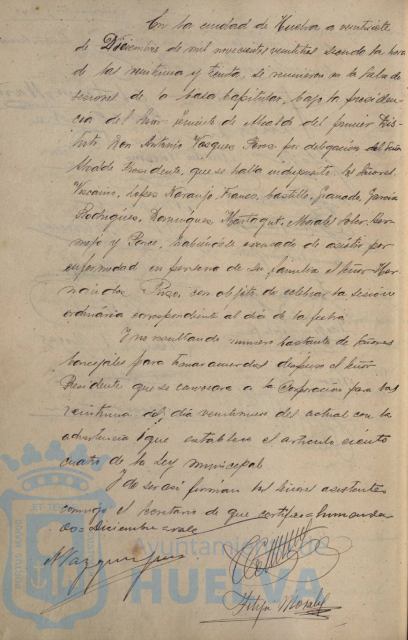 En la ciudad de Huelva a veintisiete
de Diciembre de mil novecientos veintitres siendo la hora
de las veintiuna y treinta, se reunieron en la Sala de
sesiones de la Casa Capitular, bajo la presiden-
cia del Señor Teniente de Alcalde del primer Dis-
trito Don Antonio Vazquez Perez por delegación del Señor
Alcalde Presidente, que se halla indispuesto, los Señores
Vizcaino, Lopez Naranjo, Franco, Castillo, Granado, García
Rodriguez, Dominguez, Morales Soler, Ber-
mejo y Ponce, habiéndose excusado de asistir por
enfermedad en persona de su familia el Señor Her-
nandez Pinzon con objeto de celebrar la sesión
ordinaria correspondiente al día de la fecha
Y no resultando numero bastante de Señores
Concejales para tomar acuerdos dispuso el Señor
Presidente que se convocara a la Corporación para las
veintiuna del día veintinueve del actual con la
advertencia que establece el articulo ciento
cuatro de la Ley municipal
Y de su así firman los Señores asistentes
conmigo el Secretario de que certifico = Enmendado =
Diciembre = vale
A Vazquez Perez
Felipe Morales
PORTUS MARIS
Ayuntamiento de
HUELVA